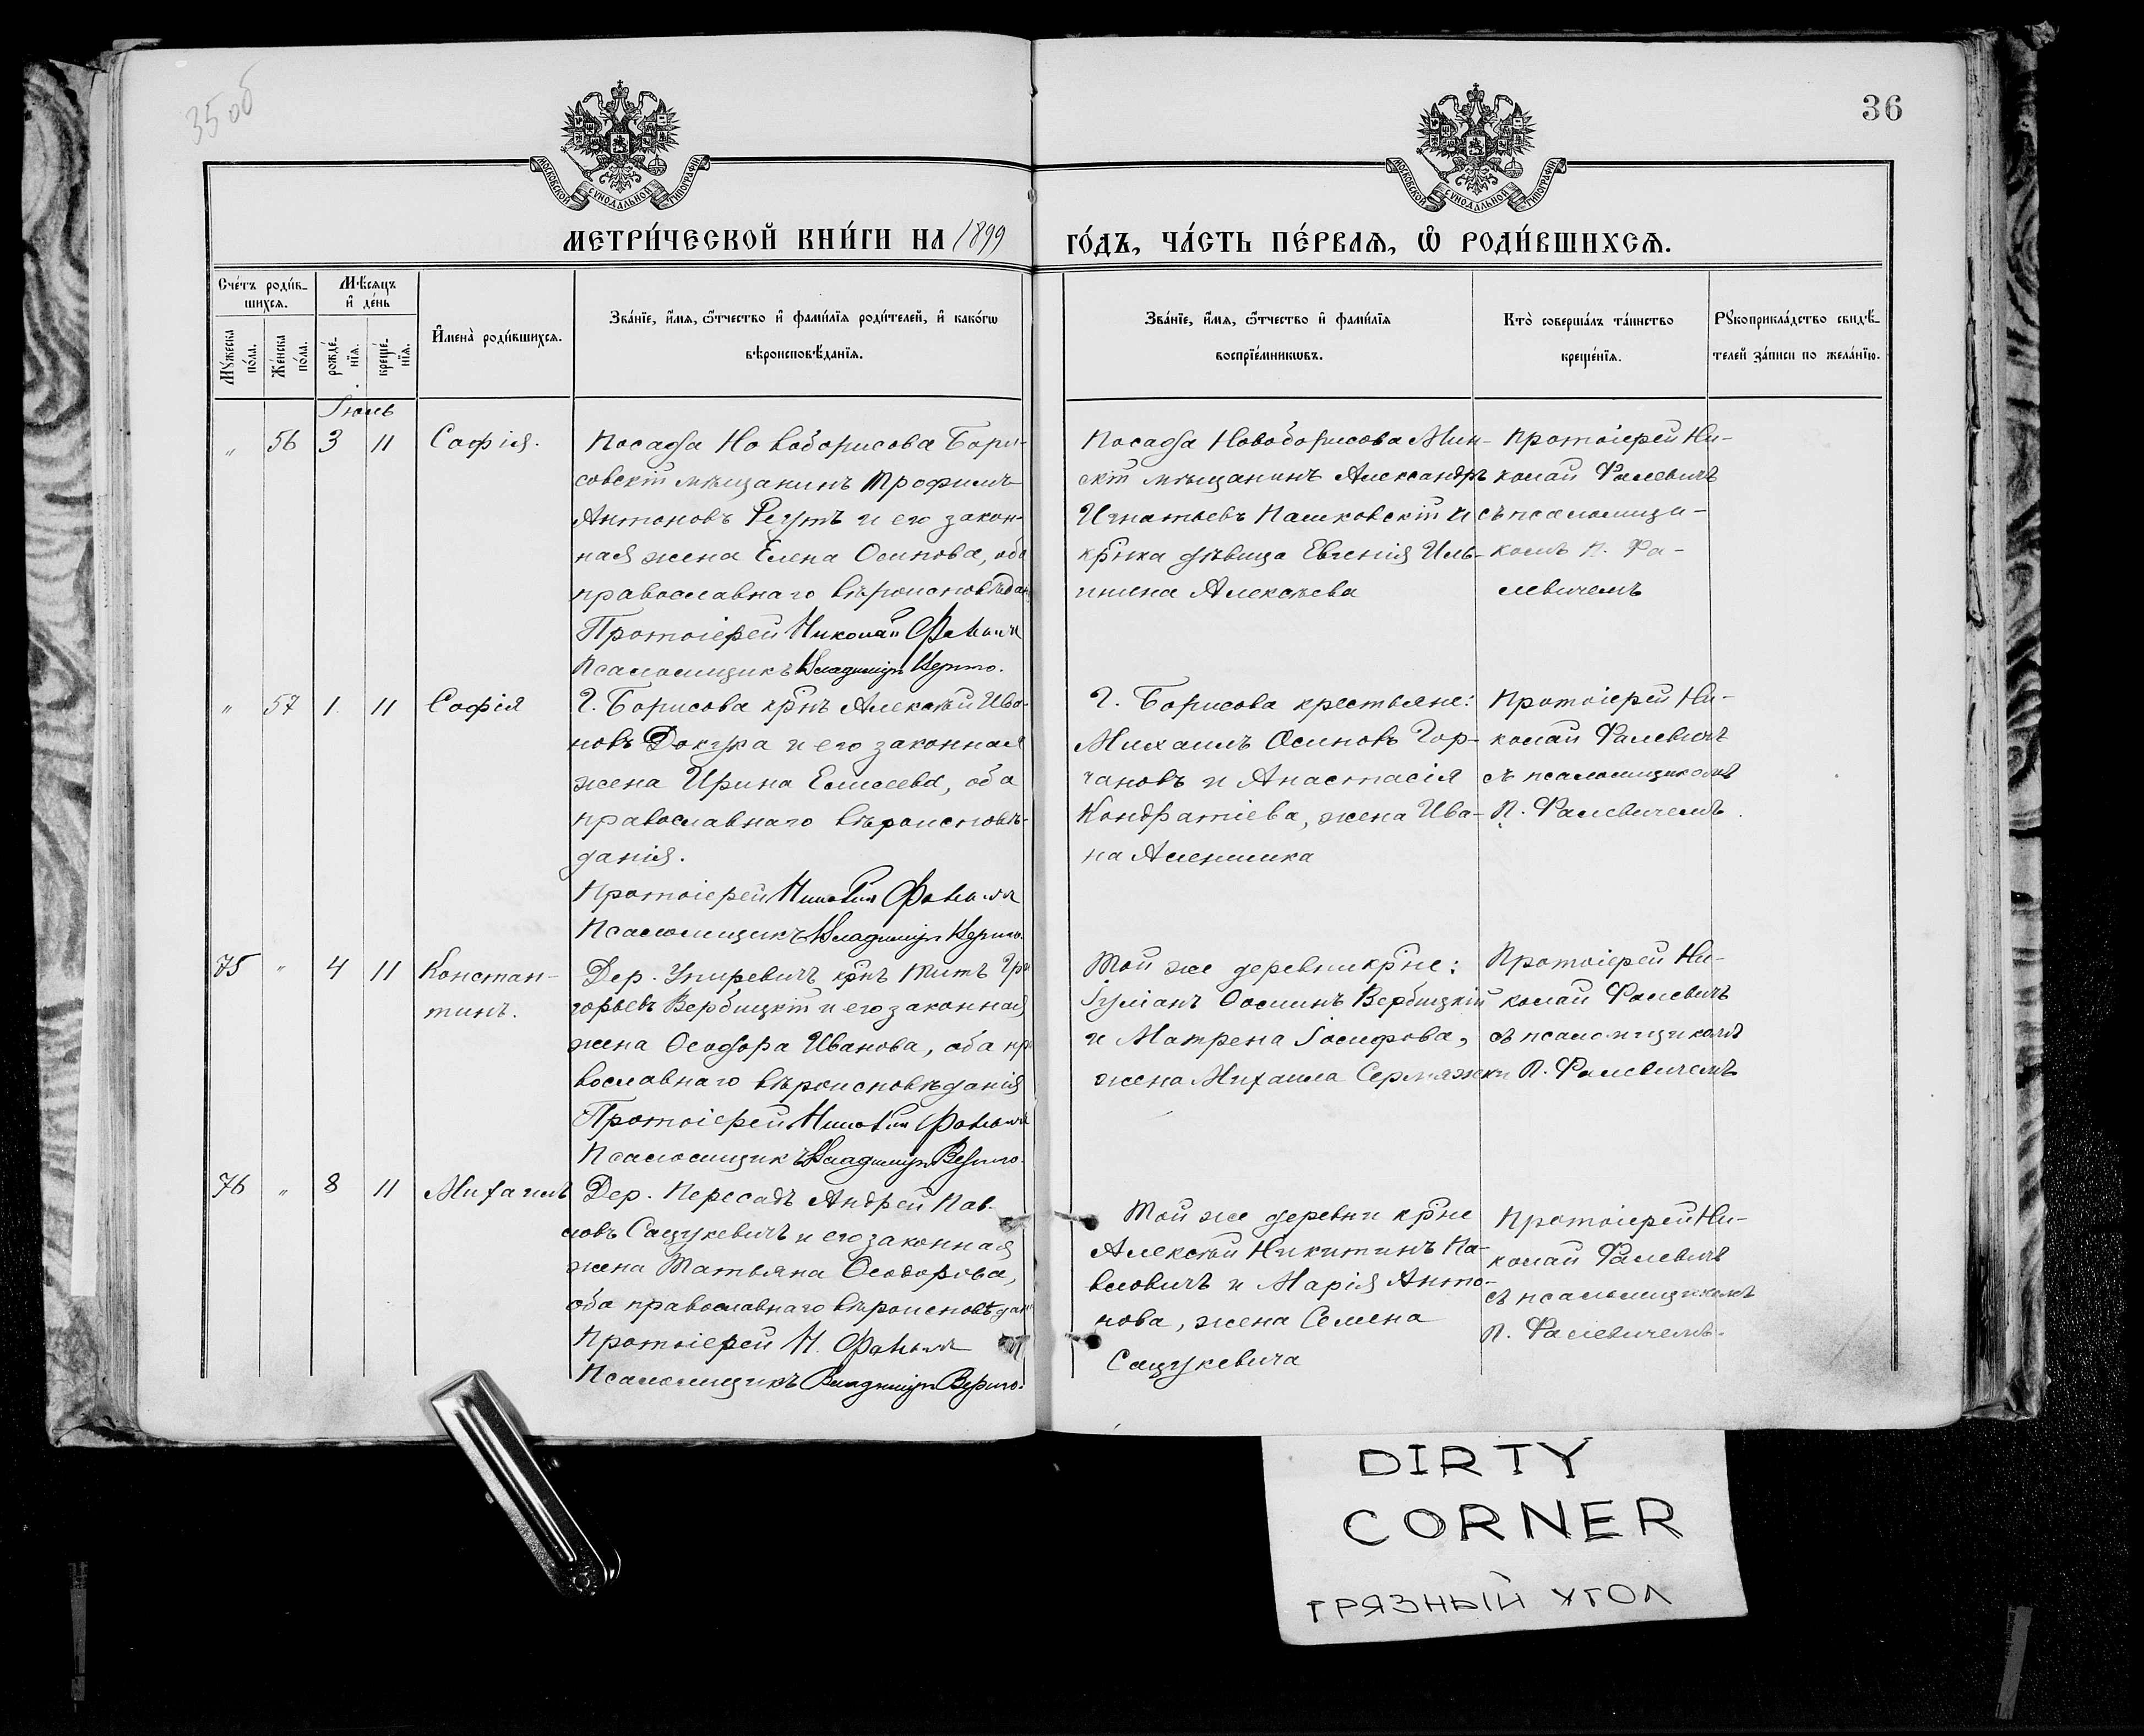 35 об
36
МОСКОВСКОЙ СУНОДАЛЬНОЙ ТИПОГРАФІИ
МОСКОВСКОЙ СУНОДАЛЬНОЙ ТИПОГРАФІИ
МЕТРИ́ЧЕСКОЙ КНИ́ГИ НА 1899
ГО́ДЪ, ЧА́СТЬ ПЕ́РВАѦ, Ѡ҆ РОДИ́ВШИХСѦ.
Сче́тъ роди́в-
шихсѧ.
Мꙋ́жеска по́ла.
Же́нска по́ла.
Мѣ́сѧцъ
и҆ де́нь
рожде́-
нїѧ.
креще́-
нїѧ.
И҆мена̀ роди́вшихсѧ.
Зва́нїе, и҆́мѧ, ѻ҆́тчество и҆ фами́лїѧ роди́телей, и҆ како́гѡ
вѣроисповѣ́данїѧ.
Зва́нїе, и҆́мѧ, ѻ҆́тчество и҆ фами́лїѧ
воспрїе́мникѡвъ.
Кто̀ соверша́лъ та́инство
креще́нїѧ.
Рꙋкоприкла́дство свидѣ́-
телей за́писи по жела́нїю.
Іюль
„ 56 3 11 Софія.
Посада Новоборисова Бори-
совскій мѣщанинъ Трофимъ
Антоновъ Регутъ и его закон-
ная жена Елена Осипова, оба
православнаго вѣроисповѣдан
Протоіерей Николай Фалевичъ
Псаломщикъ Владиміръ
Посада Новоборисова Мин-
скій мѣщанинъ Александръ
Игнатьевъ Пашковскій и
кр̃нка дѣвица Евгенія Иль-
инина Алексѣева
Протоіерей Ни-
колай Фалевичъ
съ псаломщи-
комъ П. Фа-
левичемъ
„ 57 1 11 Софія
Г. Борисова кр̃нъ Алексѣй Ива-
новъ Докука и его законная
жена Ирина Елисеева, оба
православнаго вѣроисповѣ-
данія.
Протоіерей Николай Фалевичъ
Псаломщикъ Владиміръ
Г. Борисова крестьяне:
Михаилъ Осиповъ Гор-
чановъ и Анастасія
Кондратіева, жена Ива-
на
Протоіерей Ни-
колай Фалевичъ
съ псаломщикомъ
П. Фалевичемъ.
75 „ 4 11 Констан-
тинъ.
Дер. Упиревичъ кр̃нъ Титъ Гри
горьевъ Вербицкій и его законная
жена Ѳеодора Иванова, оба пр
вославнаго вѣроисповѣданія
Протоіерей Николай Фалевичъ
Псаломщикъ Владиміръ
Той же деревни кр̃не:
Іуліанъ Вербицкій
и Матрена Іосифова,
жена Михаила Сермяжки
Протоіерей Ни-
колай Фалевичъ
съ псаломщикомъ
П. Фалевичемъ
76 „ 8 11 Михаилъ
Дер. Пересадъ Андрей Пав-
ловъ Сацукевичъ и его законная
жена Татьяна Ѳеодорова,
оба православнаго вѣроисповѣдан
Протоіерей Н. Фалевичъ
Псаломщикъ Владиміръ
Той же деревни кр̃не
Алексѣй Никитинъ Па-
вловичъ и Марія Анто-
нова, жена Семена
Сацукевича
Протоіерей Ни-
колай Фалевичъ
съ псаломщикомъ
П. Фалевичемъ.
DIRTY
CORNER
ГРЯЗНЫЙ УГОЛ